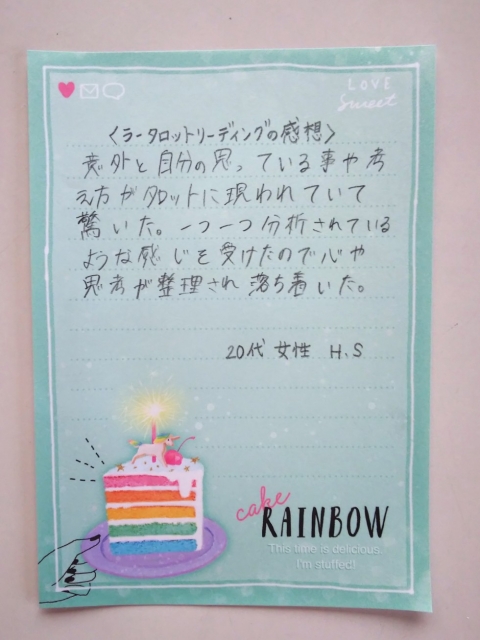 LOVE
Sweet
〈ラータロットリーディングの感想〉
意外と自分の思っている事や考
え方がタロットに現われていて
驚いた。一つ一つ分析されている
ような感じを受けたので心や
思考が整理され落ち着いた。
20代 女性 H.S
cake
RAINBOW
This time is delicious.
I'm stuffed!